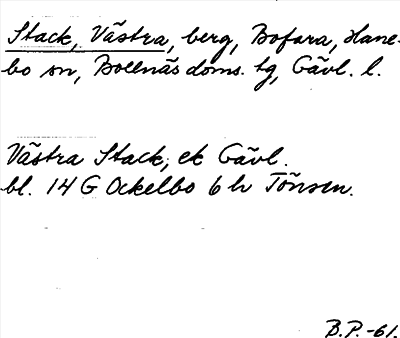 Stack, Västra, berg, Bofara, Hane-
bo sn, Bollnäs doms. tg, Gävl. l.
Västra Stack, ek Gävl.
bl. 14 G Ockelbo 6 h Tönsen.
B.P.-61.